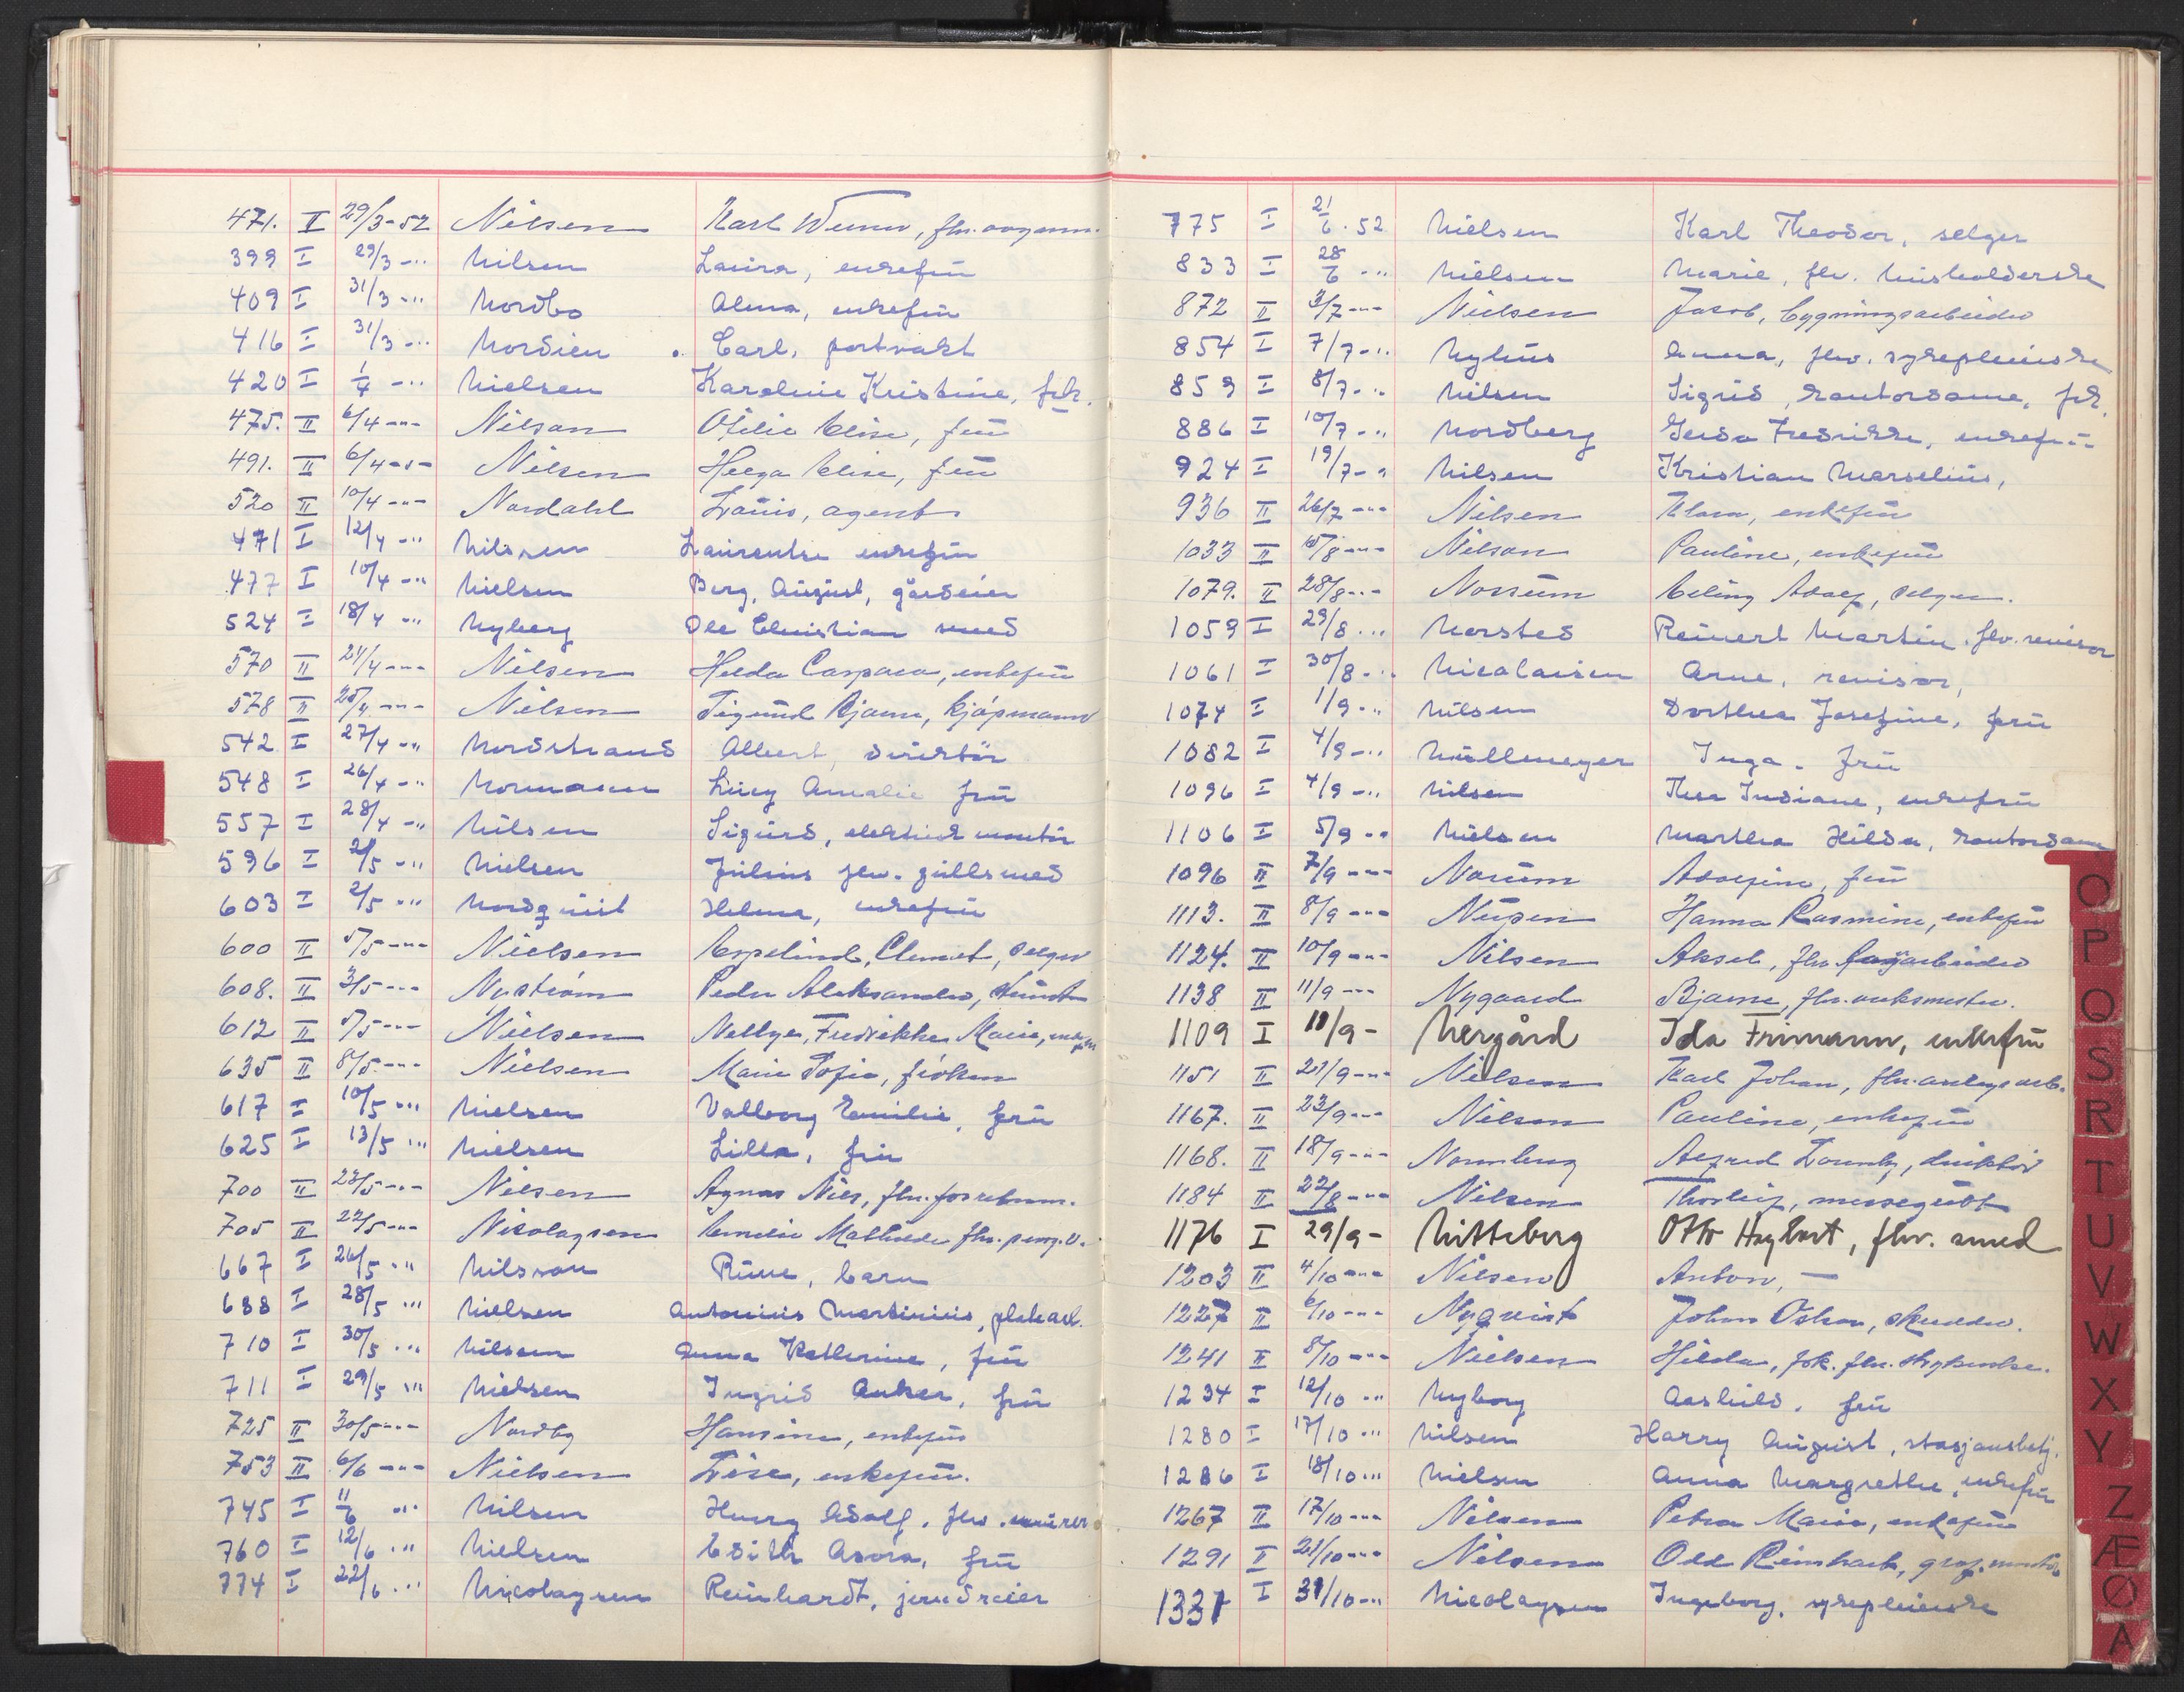 471. II 29/3-52 Nilsen Karl Werner, fhv.
399 I 29/3-" Nilsen Laura, enkefrü
409 I 31/3-" Nordbo Alma, enkefrü
416 I 31/3-" Nordien Carl, portvakt
420 I 1/4-" Nielsen Karoline Kristine, frk.
475. II 6/4-"- Nilsen Otilie Elise, frü
491. II 6/4-"- Nilsen Helga Elise, frü
520 II 10/4-"- Nordahl Louis, agent
471 I 12/4-" Nilsen Laurentse enkefrü
477 I 10/4-" Nielsen Berg, August, gårdeier
524 I 18/4-" Nyberg Ole Christian smed
570 II 21/4-"- Nilsen Hilda Caspara, enkefrü
578 II 25/4-"- Nilsen Sigund Bjarne, kjøpmann
542 I 27/4-" Nordstrand Albert, direktør
548 I 26/4-" Normann Lucy Amalie frü
557 I 28/4-" Nilsen Sigurd, elektrisk montør
596 I 2/5-" Nielsen Julius fhv. gullsmed
603 I 2/5-" Nordquist Helma, enkefrü
600 II 5/5-"- Nielsen Espelund, Clemet, selger
608. II 3/5-"- Nystrøm Peder Aleksander,
612 II 5/5-"- Nielsen Nellye, Fredrikke Marie,
635 II 8/5-"- Nielsen Marie Sofie, frøken
617 I 10/5-" Nielsen Valborg Emilie, frü
625 I 13/5-" Nielsen Lilla, frü
700 II 23/5-"- Nilsen Agnar Nils, fhv.
705 II 22/5-"- Nikolaysen Emelie Mathilde fhv.
667 I 26/5-" Nilsson Rune, barn
688 I 28/5-" Nielsen Antonius Martinius, platearb.
710 I 30/5-" Nilsen Anna Katherine, frü
711 I 29/5-" Nielsen Ingrid Anker, frü
725 II 30/5-"- Nordby Hansine, enkefrü
753 II 6/6-"- Nielsen Lise, enkefrü.
745 I 11/6-" Nilsen Henry Adolf, fhv. murer
760 I 12/6-" Nielsen Edith Asora, frü
774 I 22/6-" Nicolaysen Reinhardt, jerndreier
775 I 21/6.52 Nielsen Karl Theodor, selger
833 I 28/6-" Nielsen Marie, fhv. husholderske
872 II 3/7-"- Nielsen Jacob, bygningsarbeider
854 I 7/7-" Nyhus Anna, fhv. sykepleierske
859 I 8/7-" Nilsen Sigrid, kontordame, frk.
886 I 10/7-" Nordberg Gerda Fredrikke, enkefrü
924 I 19/7-" Nilsen Kristian Marselius,
936 II 26/7-"- Nilsen Klara, enkefrü
1033 II 15/8-"- Nilsen Pauline, enkefrü
1079. II 28/8-"- Norrum Erling Adolf, selger.
1059 I 29/8-" Norsted Reinert Martin. fhv. revisor
1061 I 30/8-" Nicolaisen Arne, revisor,
1074 I 1/9-" Nilsen Dorthea Josefine, frü
1082 I 4/9-" Nüllmeyer Inga. frü
1096 I 4/9-" Nilsen Thea Indiane, enkefrü
1106 I 5/9-" Nielsen Martha Hilda, kontordame
1096 II 7/9-"- Norum Adolfine, frü
1113. II 8/9-"- Nilsen Hanna Rasmine, enkefrü
1124. II 10/9-"- Nilsen Aksel, fhv.
1138 II 11/9-"- Nygaard Bjarne, fhv. verksmester.
1109 I 11/9- Nergård Ida Frimann, enkefrü
1151 II 21/9-"- Nilsen Karl Johan, fhv. anleggsarb.
1167. II 23/9-"- Nilsen Pauline, enkefrü
1168. II 18/9-"- Nornberg Alfred Lorentz, direktør
1184 II 22/8-"- Nilsen Thorleif, messegutt
1176 I 29/9- Nitteberg Otto Hagbart, fhv. smed
1203 II 4/10-"- Nilsen Anton, —
1227 II 6/10-"- Nyqvist Johan Oskar, skredder.
1241 II 8/10-"- Nielsen Hilda, frk. fhv.
1234 I 12/10-" Nyborg Aashild, frü
1280 I 17/10-" Nilsen Harry August, stasjonsbetj.
1286 I 18/10-" Nielsen Anna Margrethe, enkefrü
1267 II 17/10-"- Nilsen Petra Marie, enkefrü
1291 I 21/10-"- Nilsen Odd Reinhardt,
1331 I 31/10-" Nicolaysen Ingeborg, sykepleierske
O
P
Q
S
R
T
U
V
W
X
Y
Z
Æ
Ø
A